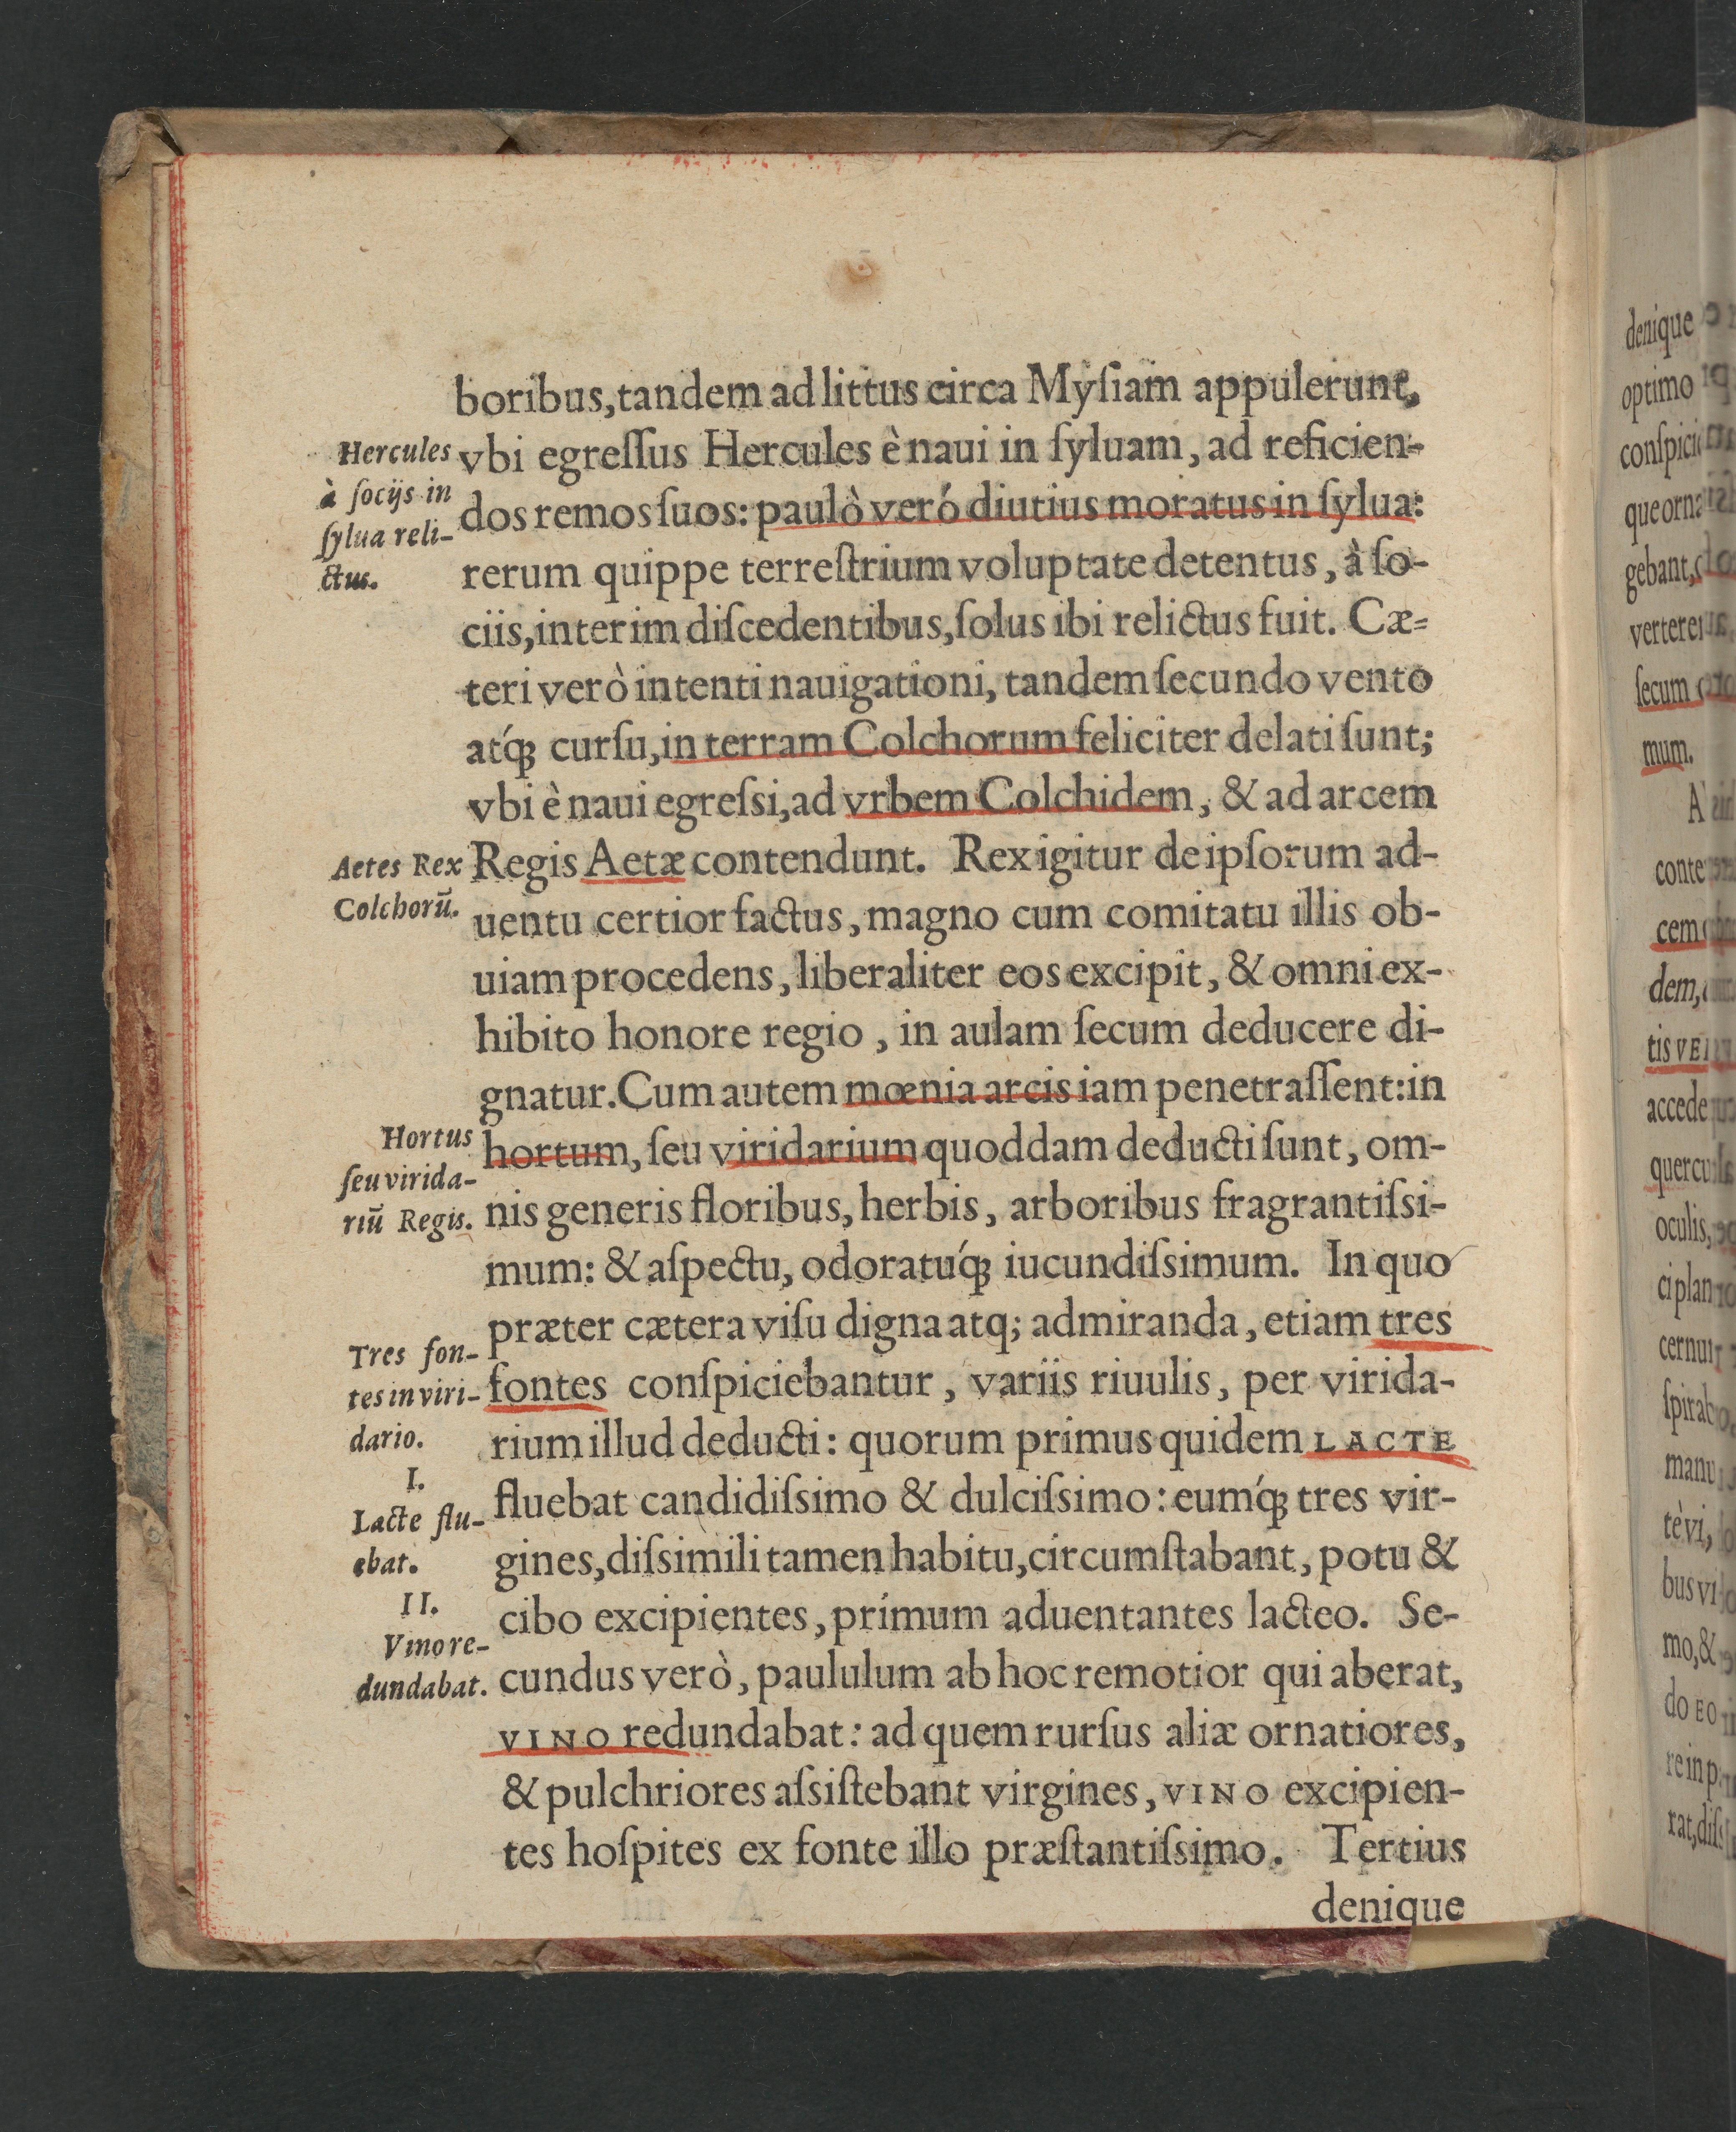 boribus, tandem ad littus circa Myſiam appulerunt,
vbi egreſſus Hercules è naui in ſyluam, ad reficien-
dos remos ſuos: paulò veró diutius moratus in ſylua:
rerum quippe terreſtrium voluptate detentus, à ſo-
ciis, interim diſcedentibus, ſolus ibi relictus fuit. Cæ-
teri verò intenti nauigationi, tandem ſecundo vento
atq́ꝫ curſu, in terram Colchorum feliciter delati ſunt;
vbi è naui egreſsi, ad vrbem Colchidem, & ad arcem
Regis Aetæ contendunt. Rex igitur de ipſorum ad-
uentu certior factus, magno cum comitatu illis ob-
uiam procedens, liberaliter eos excipit, & omni ex-
hibito honore regio, in aulam ſecum deducere di-
gnatur. Cum autem mœnia arcis iam penetraſſent: in
hortum, ſeu viridarium quoddam deducti ſunt, om-
nis generis floribus, herbis, arboribus fragrantiſsi-
mum: & aſpectu, odoratuq́ꝫ iucundiſsimum. In quo
præter cætera viſu digna atq; admiranda, etiam tres
fontes conſpiciebantur, variis riuulis, per virida-
rium illud deducti: quorum primus quidem LACTE
fluebat candidiſsimo & dulciſsimo: eumq́ꝫ tres vir-
gines, diſsimili tamen habitu, circumſtabant, potu &
cibo excipientes, prímum aduentantes lacteo. Se-
cundus verò, paululum ab hoc remotior qui aberat,
VINO redundabat: ad quem rurſus aliæ ornatiores,
& pulchriores aſsiſtebant virgines, VINO excipien-
tes hoſpites ex fonte illo præſtantiſsimo. Tertius
denique
Hercules
à ſocijs in
ſylua reli-
ctus.
Aetes Rex
Colchorū.
Hortus
ſeu virida-
riū Regis.
Tres fon-
tes in viri-
dario.
I.
Lacte flu-
ebat.
II.
Vino re-
dundabat.
denique
optimo
conſpici
que orna
gebant,
vertere
ſecum
mum.
A
conte
cem
dem,
tis VE
accede
quercu
oculis,
ci plan
cernu
ſpirab
manu
tè vi,
bus vi
mo, &
do EO
re in p
rat, diſ